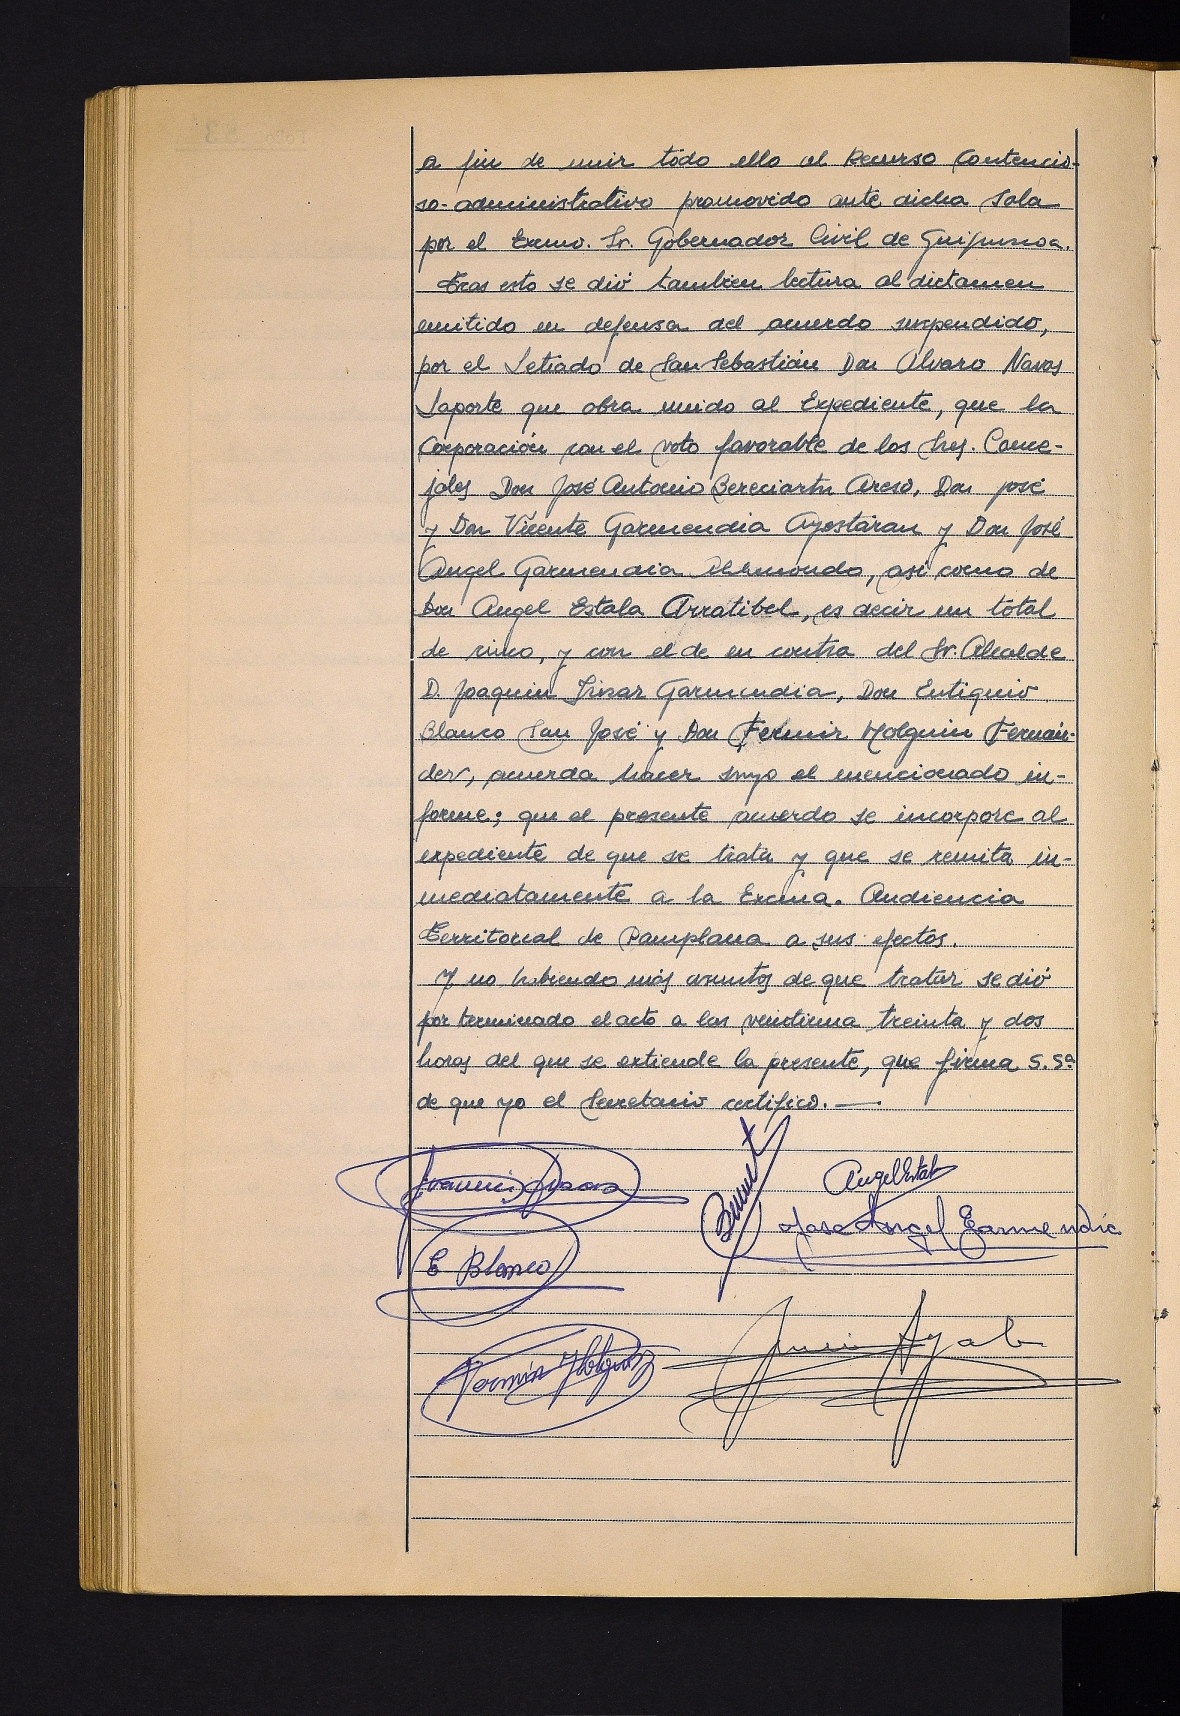 a fin de unir todo ello al Recurso Contencio-
so-administrativo promovido ante dicha Sala
por el Excmo. Sr. Gobernador Civil de Guipuzcoa.
Tras esto se dió tambien lectura al dictamen
emitido en defensa del acuerdo suspendido,
por el Letrado de San Sebastián Don Alvaro Navas
Laporte que obra unido al Expediente, que la
Corporación con el voto favorable de los Sres. Conce-
jales Don José Antonio Bereciartu Areso, Don José
y Don Vicente Garmendia Ayestáran y Don José
Angel Garmendia, asi como de
Don Angel Estala Arratibel, es decir un total
de cinco, y con el de en contra del Sr. Alcalde
D. Joaquin Garmendia, Don Eutiquio
Blanco San José y Don Fermin Holguin Fernán-
dez, acuerda hacer suyo el mencionado in-
forme; que el presente acuerdo se incorpore al
expediente de que se trata y que se remita in-
mediatamente a la Excma. Audiencia
Territorial de Pamplana a sus efectos.
Y no habiendo más asuntos de que tratar se dió
por terminado el acto a las treinta y dos
horas del que se extiende la presente, que firma S. Sª
de que yo el Secretario certifico. —
Angel Estal
Jose Angel Garmendia
E Blanco
Fermin Holguin